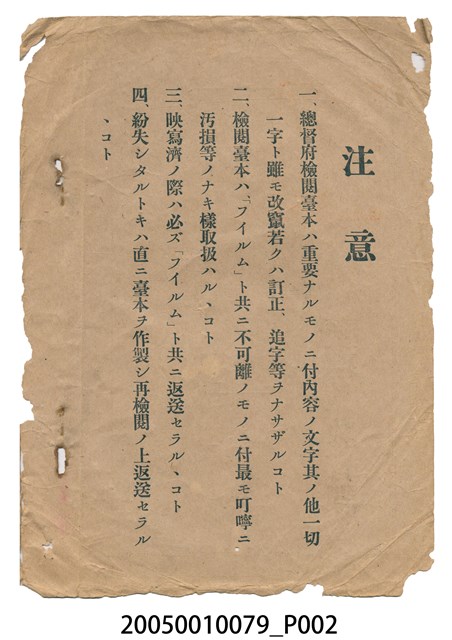 注意
一、總督府檢閱臺本ハ重要ナルモノニ付內容ノ文字其ノ他一切
一字ト雖モ改竄若クハ訂正、追字等ヲナサザルコト
二、檢閱臺本ハ、「フイルム」ト共ニ不可離ノモノニ付最モ叮嚀ニ
汚損等ノナキ樣取扱ハル、コト
三、映寫濟ノ際ハ必ズ「フイルム」ト共ニ返送セラル、コト
四、紛失シタルトキハ直ニ臺本ヲ作製シ再檢閱ノ上返送セラル
、コト
20050010079_P002